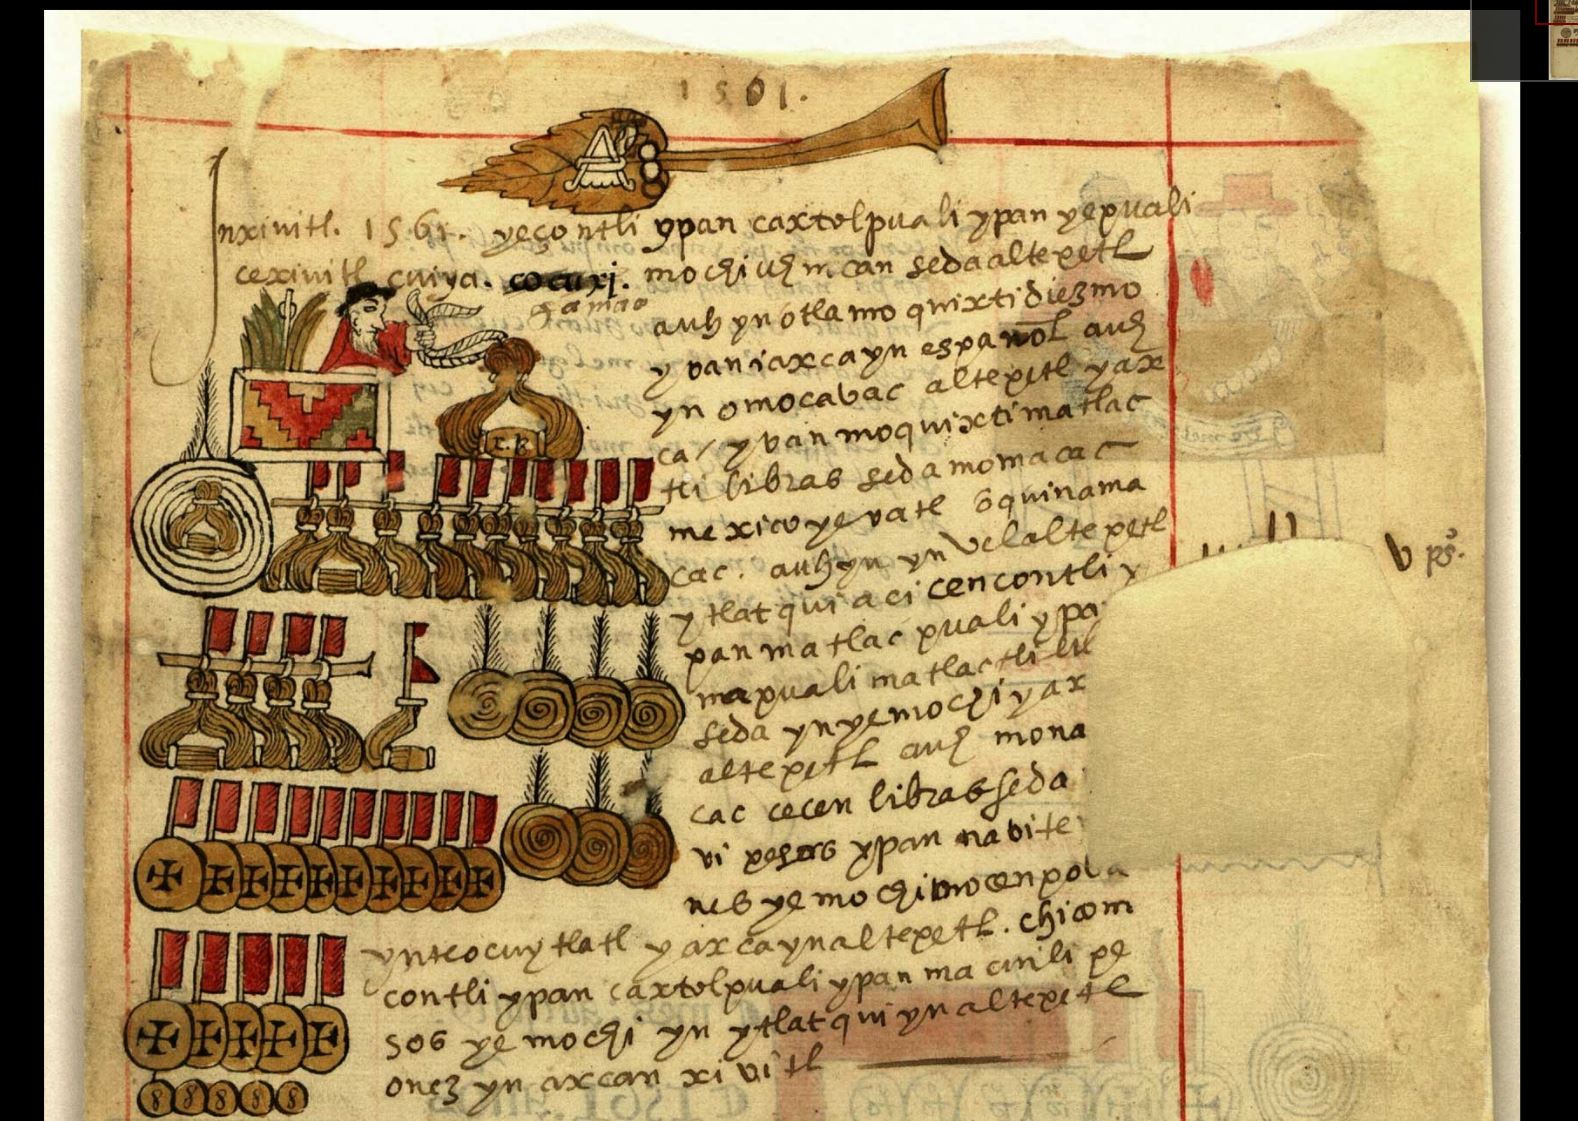 1561.
nxiuitl. 1561. yecontli ypan caxtolpuali ypan yepuali
cexiuitl cuiya. cocuxi. mochiuh mcan sedaaltepetl
gamao
auh ynotlamo quixtidiezmo
ypaniaxcayn español auh
yn omocavac altepetl yax
ca/ yvan moquixtimatlac
tli libras sedamomacac
mexico yevatl oquinama
cac. auhyn ynvelaltepetl
ytlatqui aci cencontli y
pan matlac puali ypa
mapuali matlactli li
seda ynyemochiyax
altepetl auh mona
cac cecen libras seda
vi pesos ypan navite
nes yemochimocenpova
ynteocuytlatl yaxcaynaltepetl. chicom
contli ypan caxtolpuali ypan macuili pe
sos ye mochi yn ytlatqui ynaltepetl
onez yn axcan xivitl
v ps.